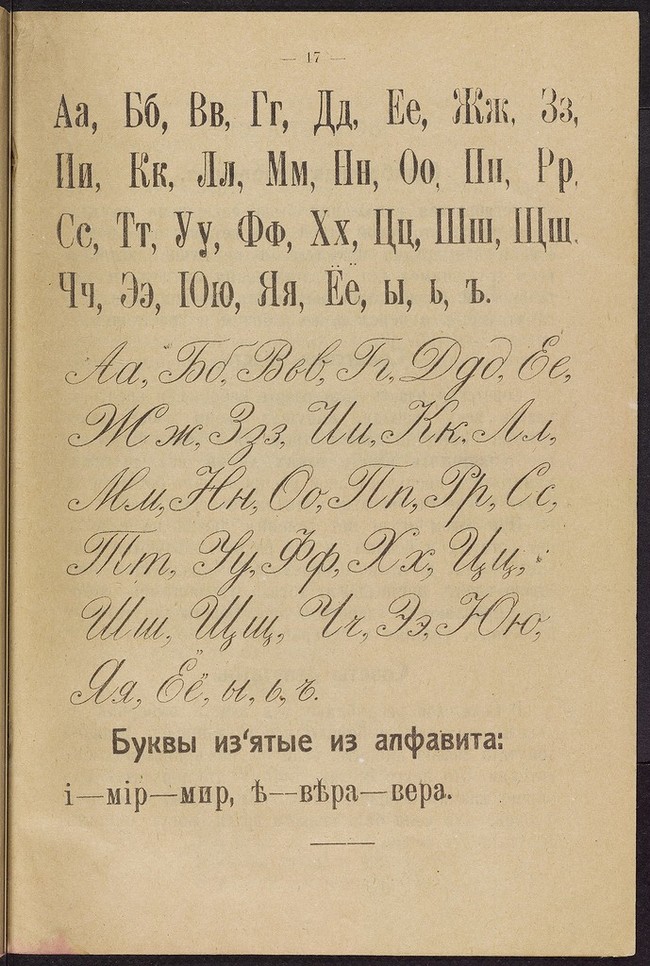 — 17 —
Аа, Бб, Вв, Гг, Дд, Ее, Жж, Зз,
Ии, Кк, Лл, Мм, Нн, Оо, Пп, Рр,
Сс, Тт, Уу, Фф, Хх, Цц, Шш, Щщ.
Чч, Ээ, Юю, Яя, Ёё, ы, ь, ъ.
Аа, Бб, Ввв, Гг, Ддд, Ее,
Жж, Ззз, Ии, Кк, Лл,
Мм, Нн, Оо, Пп, Рр, Сс,
Тт, Уу, Фф, Хх, Цц,
Шш, Щщ, Чч, Ээ, Юю,
Яя, Её, ы, ь, ъ.
Буквы из‘ятые из алфавита:
і—мір—мир, ѣ—вѣра—вера.